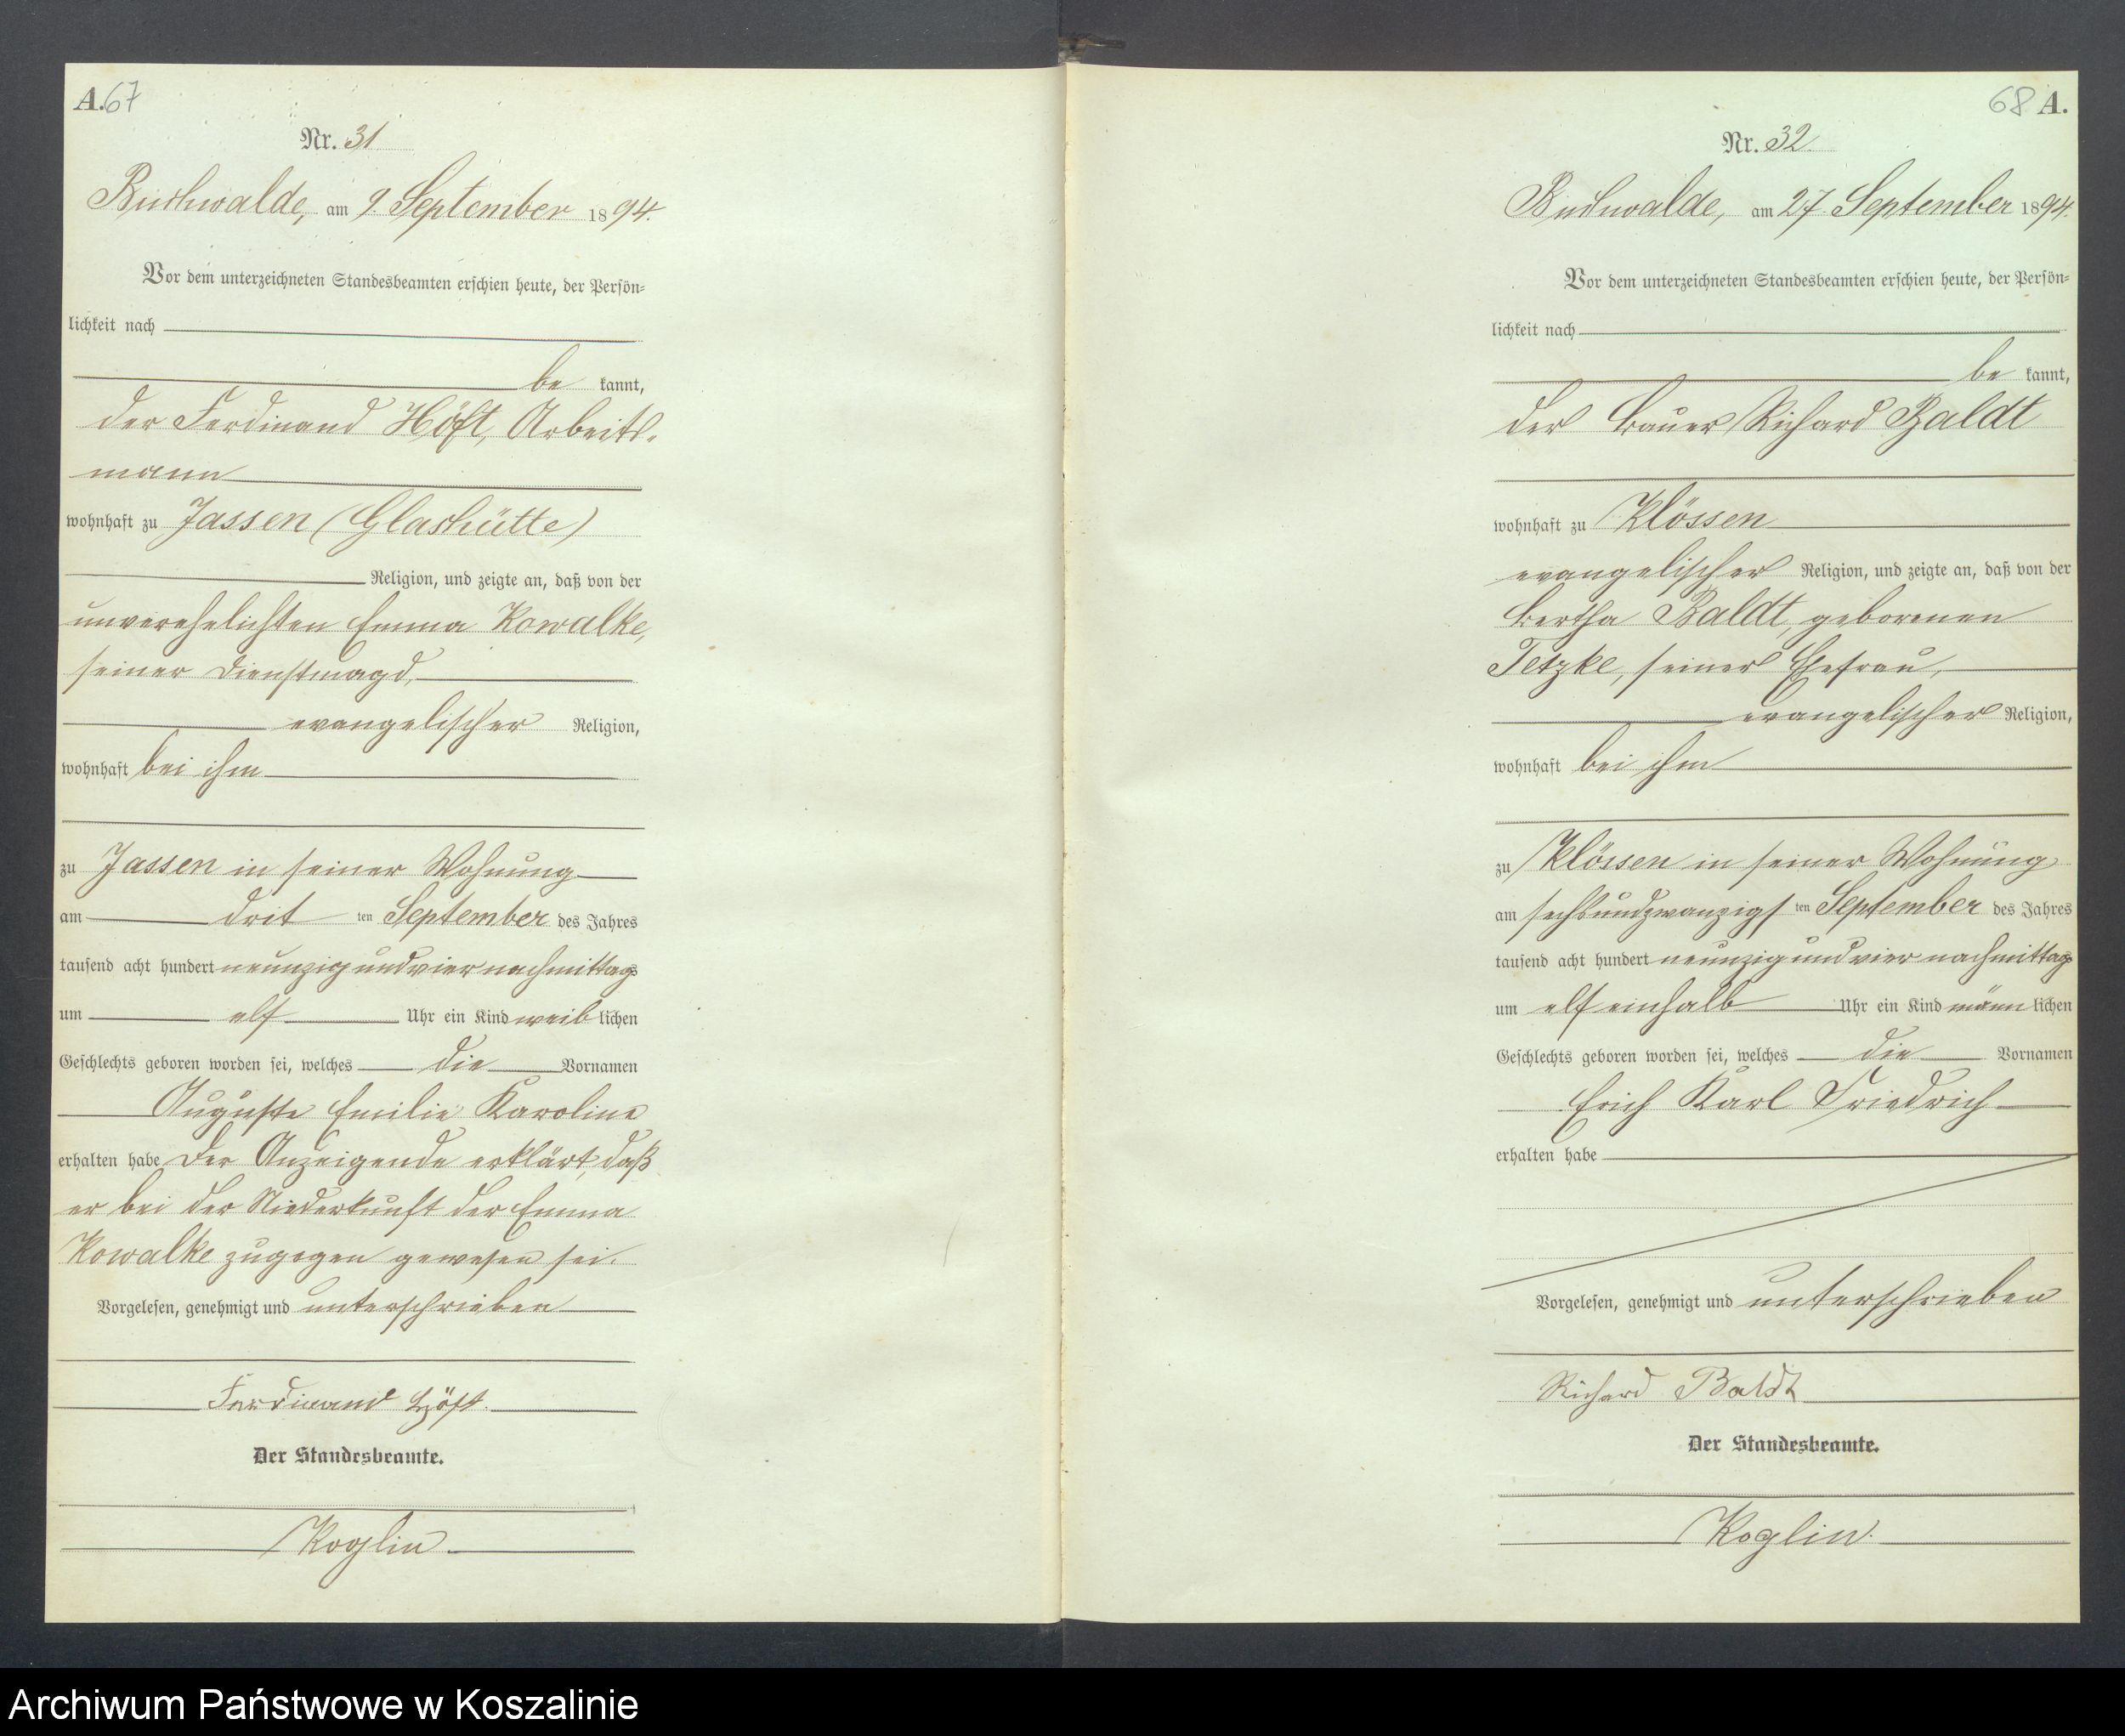 A. 67
Nr. 31
Buchwalde, am 9. September 1894.
Vor dem unterzeichneten Standesbeamten erschien heute, der Persön-
lichkeit nach
be kannt,
der Ferdinand Höft, Arbeits-
mann
wohnhaft zu Jassen (Glashütte)
Religion, und zeigte an, daß von der
unverehelichten Emma Kowalke,
seiner Dienstmagd,
evangelischer Religion,
wohnhaft bei ihm
zu Jassen in seiner Wohnung
am drit ten September des Jahres
tausend acht hundert neunzig und vier nachmittags
um elf Uhr ein Kind weib lichen
Geschlechts geboren worden sei, welches die Vornamen
Auguste Emilie Karoline
erhalten habe Der Anzeigende erklärt, daß
er bei der Niederkunft der Emma
Kowalke zugegen gewesen sei.
Vorgelesen, genehmigt und unterschrieben
Ferdinand Höft.
Der Standesbeamte.
Koglin
68 A.
Nr. 32
Buchwalde, am 27. September 1894.
Vor dem unterzeichneten Standesbeamten erschien heute, der Persön-
lichkeit nach
be kannt,
der Bauer Richard Baldt
wohnhaft zu Klössen
evangelischer Religion, und zeigte an, daß von der
Bertha Baldt, geborenen
Tetzke, seiner Ehefrau,
evangelischer Religion,
wohnhaft bei ihm
zu Klössen in seiner Wohnung
am sechsundzwanzigs ten September des Jahres
tausend acht hundert neunzig und vier nachmittags
um elf einhalb Uhr ein Kind männ lichen
Geschlechts geboren worden sei, welches die Vornamen
Erich Karl Friedrich
erhalten habe
Vorgelesen, genehmigt und unterschrieben
Richard Baldt
Der Standesbeamte.
Koglin.
Archiwum Państwowe w Koszalinie